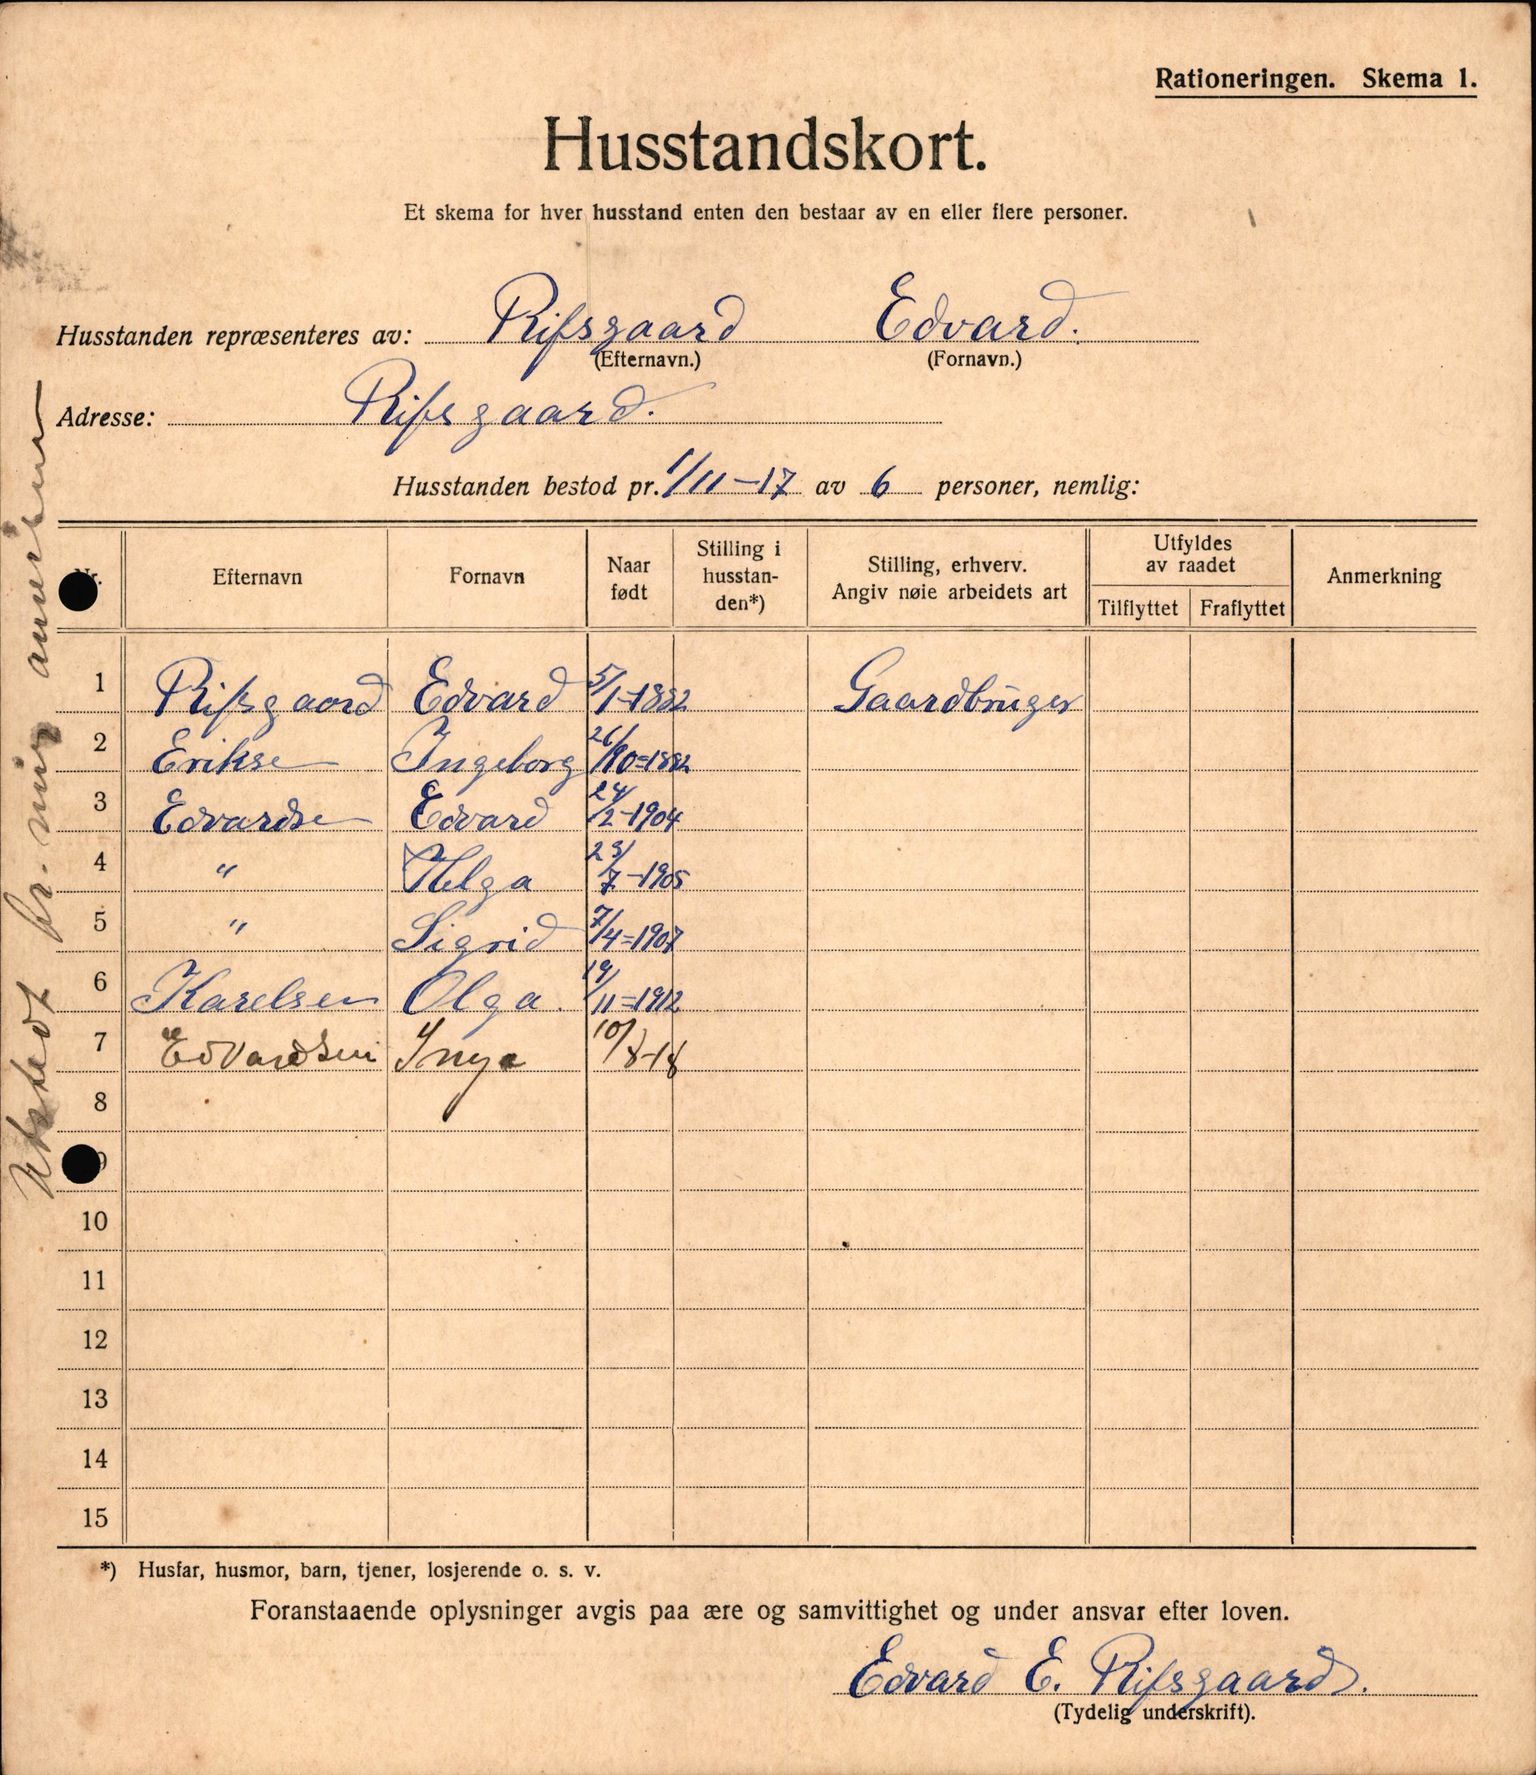 Rationeringen. Skema 1.
Husstandskort.
Et skema for hver husstand enten den bestaar av en eller flere personer.
Husstanden repræsenteres av: Rifsgaard Edvard.
(Efternavn.) (Fornavn.)
Adresse: Rifsgaard.
Husstanden bestod pr. 1/11-17 av 6 personer, nemlig:
Nr. Efternavn Fornavn Naar født Stilling i husstan-den*) Stilling, erhverv. Angiv nøie arbeidets art Utfyldes av raadet Tilflyttet Fraflyttet Anmerkning
1 Rifsgaard Edvard 5/1-1882 Gaardbruger
2 Erikse Ingeborg 26/10=1882
3 Edvardse Edvard 24/2-1904
4 " Helga 23/7-1905
5 " Sigrid 7/4=1907
6 Karelsen Olga. 19/11=1912
7 Edvardsen Inga 10/8-18
8
9
10
11
12
13
14
15
*) Husfar, husmor, barn, tjener, losjerende o. s. v.
Foranstaaende oplysninger avgis paa ære og samvittighet og under ansvar efter loven.
Edvard E. Rifsgaard.
(Tydelig underskrift).